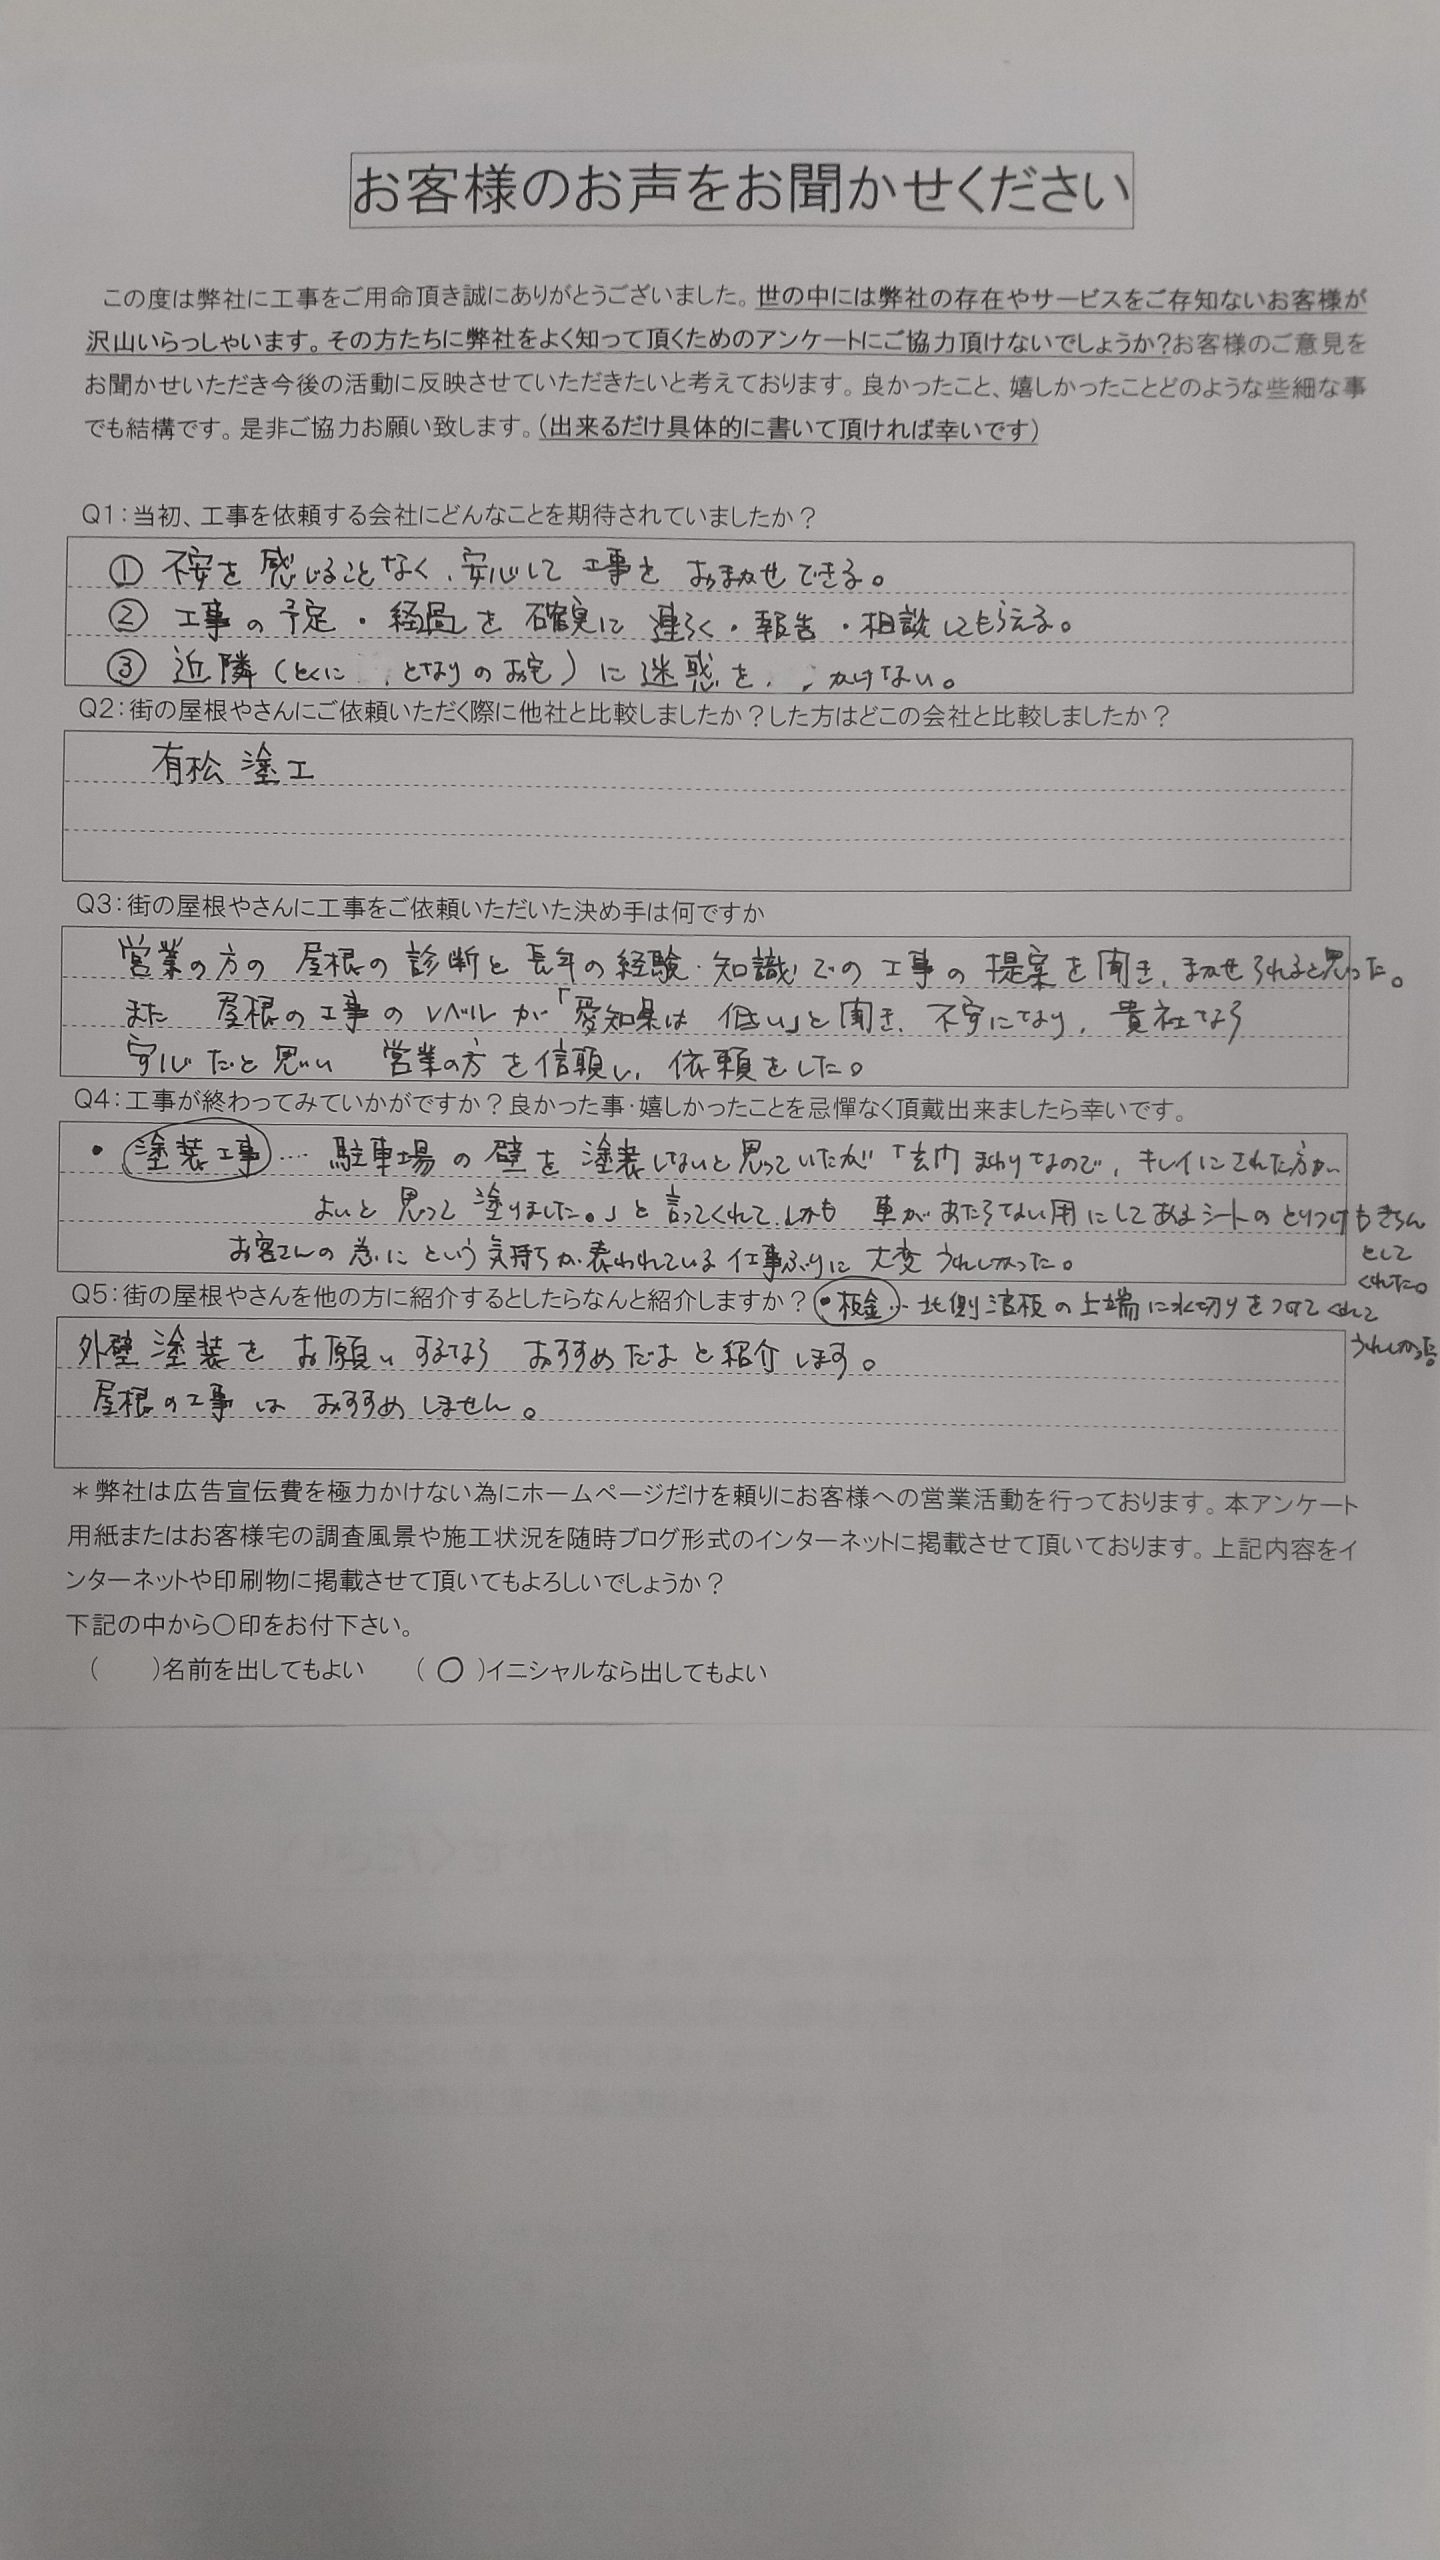 お客様のお声をお聞かせください
この度は弊社に工事をご用命頂き誠にありがとうございました。世の中には弊社の存在やサービスをご存知ないお客様が
沢山いらっしゃいます。その方たちに弊社をよく知って頂くためのアンケートにご協力頂けないでしょうか？お客様のご意見を
お聞かせいただき今後の活動に反映させていただきたいと考えております。良かったこと、嬉しかったことどのような些細な事
でも結構です。是非ご協力お願い致します。（出来るだけ具体的に書いて頂ければ幸いです）
Q1：当初、工事を依頼する会社にどんなことを期待されていましたか？
① 不安を感じることなく、安心して工事をおまかせできる。
② 工事の予定・経過を確実に連らく・報告・相談してもらえる。
③ 近隣（とくに、となりのお宅）に迷惑をかけない。
Q2：街の屋根やさんにご依頼いただく際に他社と比較しましたか？した方はどこの会社と比較しましたか？
有松塗工
Q3：街の屋根やさんに工事をご依頼いただいた決め手は何ですか
営業の方の 屋根の診断と長年の経験・知識での工事の提案を聞き、まかせられると思った。
また 屋根の工事のレベルが「愛知県は 低い」と聞き、不安になり、貴社なら
安心だと思い 営業の方を信頼し、依頼をした。
Q4：工事が終わってみていかがですか？良かった事・嬉しかったことを忌憚なく頂戴出来ましたら幸いです。
・塗装工事…. 駐車場の壁を塗装しないと思っていたが「玄内まわりなので、キレイにされた方が
よいと思って塗りました。」と言ってくれて、しかも 車があたらない用にしてあるシートのとりつけもきちん
として
くれた。
お客さんの為にという気持ちが表われている仕事ぶりに 大変うれしかった。
Q5：街の屋根やさんを他の方に紹介するとしたらなんと紹介しますか？
・板金… 北側波板の上端に水切りをつけてくれて
うれしかった。
外壁塗装をお願いするなら おすすめだよと紹介します。
屋根の工事は おすすめしません。
＊弊社は広告宣伝費を極力かけない為にホームページだけを頼りにお客様への営業活動を行っております。本アンケート
用紙またはお客様宅の調査風景や施工状況を随時ブログ形式のインターネットに掲載させて頂いております。上記内容をイ
ンターネットや印刷物に掲載させて頂いてもよろしいでしょうか？
下記の中から〇印をお付下さい。
（　　）名前を出してもよい　　（ 〇 ）イニシャルなら出してもよい